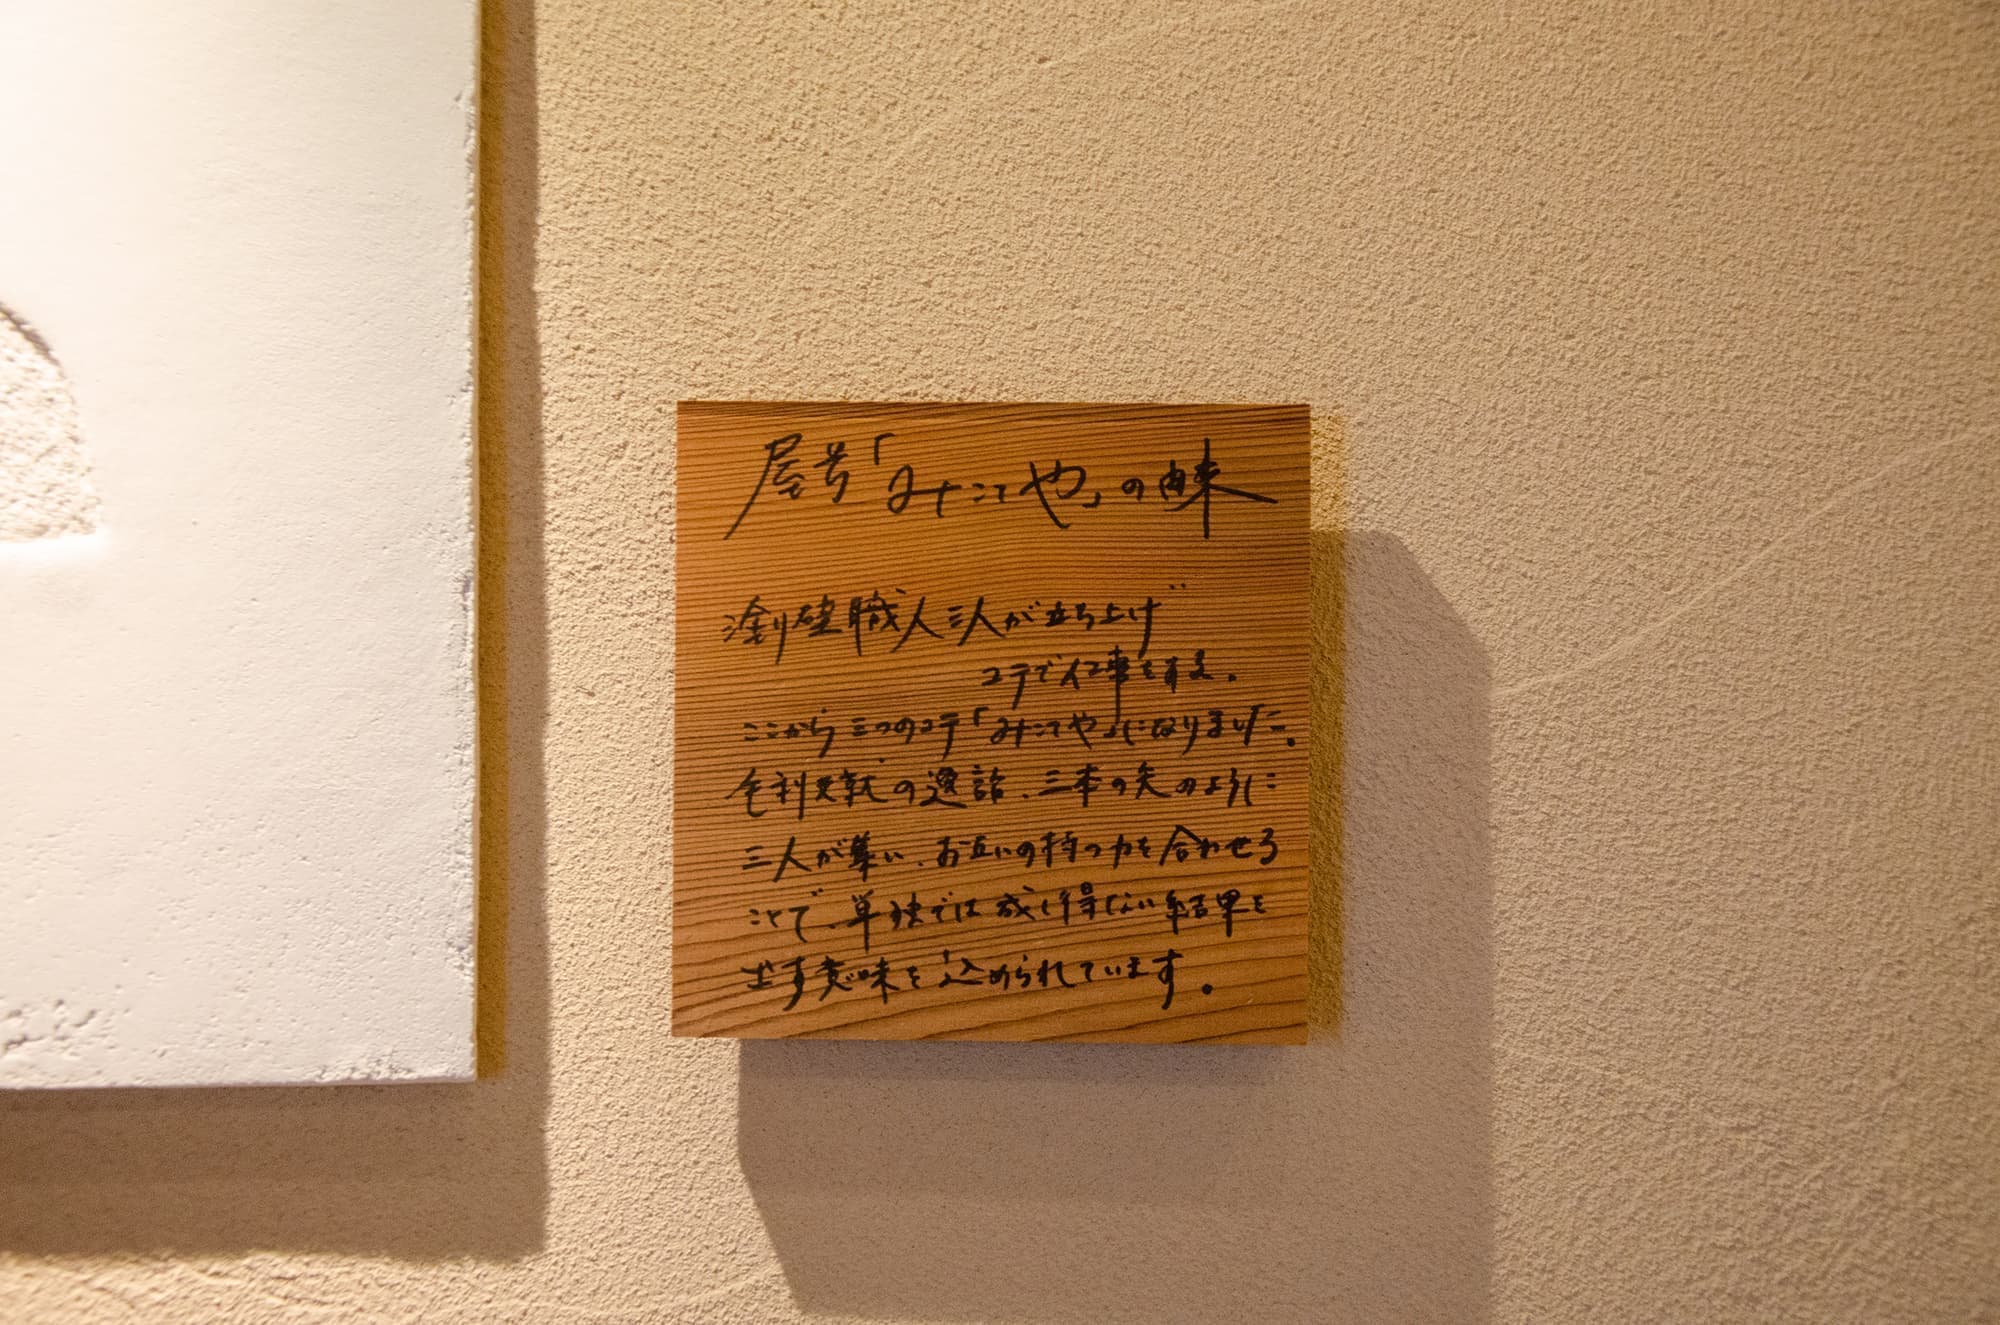 屋号「みこてや」の由来
塗り壁職人三人が立ち上げ
コテで仕事をする。
ここから三つのコテ「みこてや」になりました。
毛利元就の逸話、三本の矢のように
三人が集い、お互いの持つ力を合わせる
ことで、単独では成し得ない結果を
出す意味を込められています。